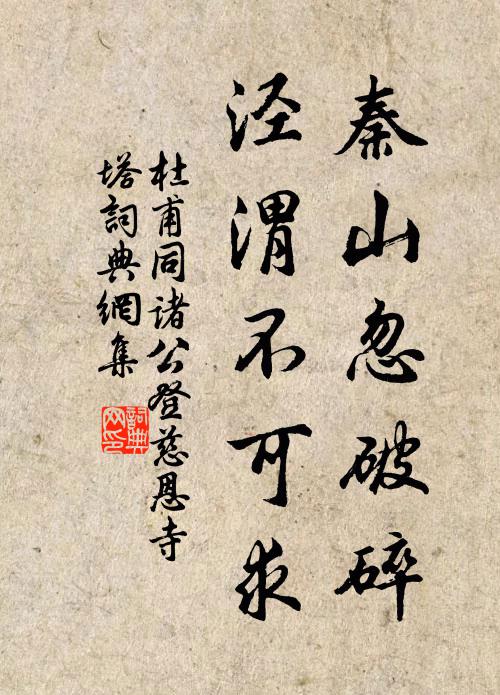 秦山忽破碎
泾渭不可求
杜甫同诸公登慈恩寺
塔詞典網集
詞典网印